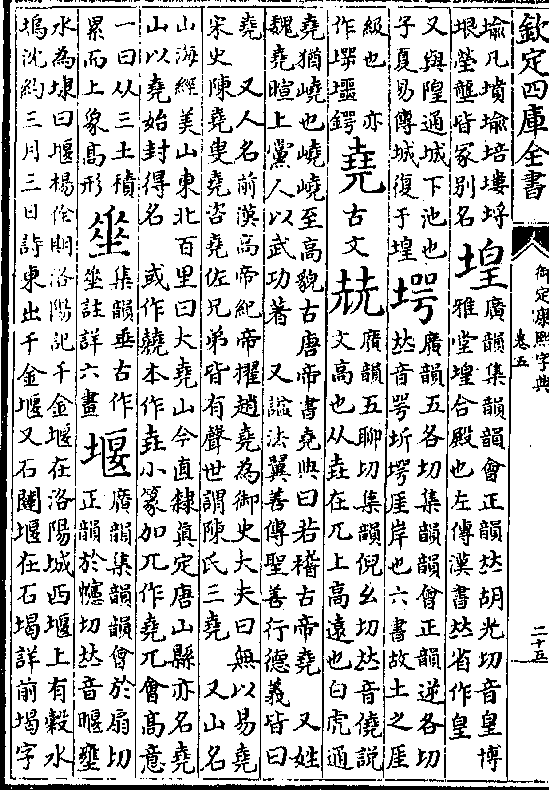 欽定四庫全書
御定康熙字典
卷五
二十五
堬凡墳堬培塿埒
垠塋壟皆冢别名
堭
廣韻集韻韻會正韻𠀤胡光切音皇博
雅堂堭合殿也左傳漢書𠀤省作皇
又與隍通城下池也
子夏易傳城復于堭
堮
廣韻五各切集韻韻會正韻逆各切
𠀤音咢圻堮厓岸也六書故土之厓
級也 亦
作㙍壃鍔
𡋰
古文
堯
廣韻五聊切集韻倪幺切𠀤音僥說
文高也从垚在兀上高遠也白虎通
堯猶嶢也嶢嶢至高貌古唐帝書堯典曰若稽古帝堯 又姓
魏堯暄上黨人以武功著 又諡法翼善傳聖善行德義皆曰
堯 又人名前漢高帝紀帝擢趙堯為御史大夫曰無以易堯
宋史陳堯叟堯咨堯佐兄弟皆有聲世謂陳氏三堯 又山名
山海經美山東北百里曰大堯山今直隸真定唐山縣亦名堯
山以堯始封得名 或作兟本作垚小篆加兀作堯兀會高意
一曰从三土積
累而上象高形
𡋲
集韻垂古作
𡍮註詳六畫
堰
廣韻集韻韻會於扇切
正韻於幰切𠀤音暱壅
水為埭曰堰楊佺期洛陽記千金堰在洛陽城西堰上有穀水
塢沈約三月三日詩東出千金堰又石闥堰在石堨詳前堨字